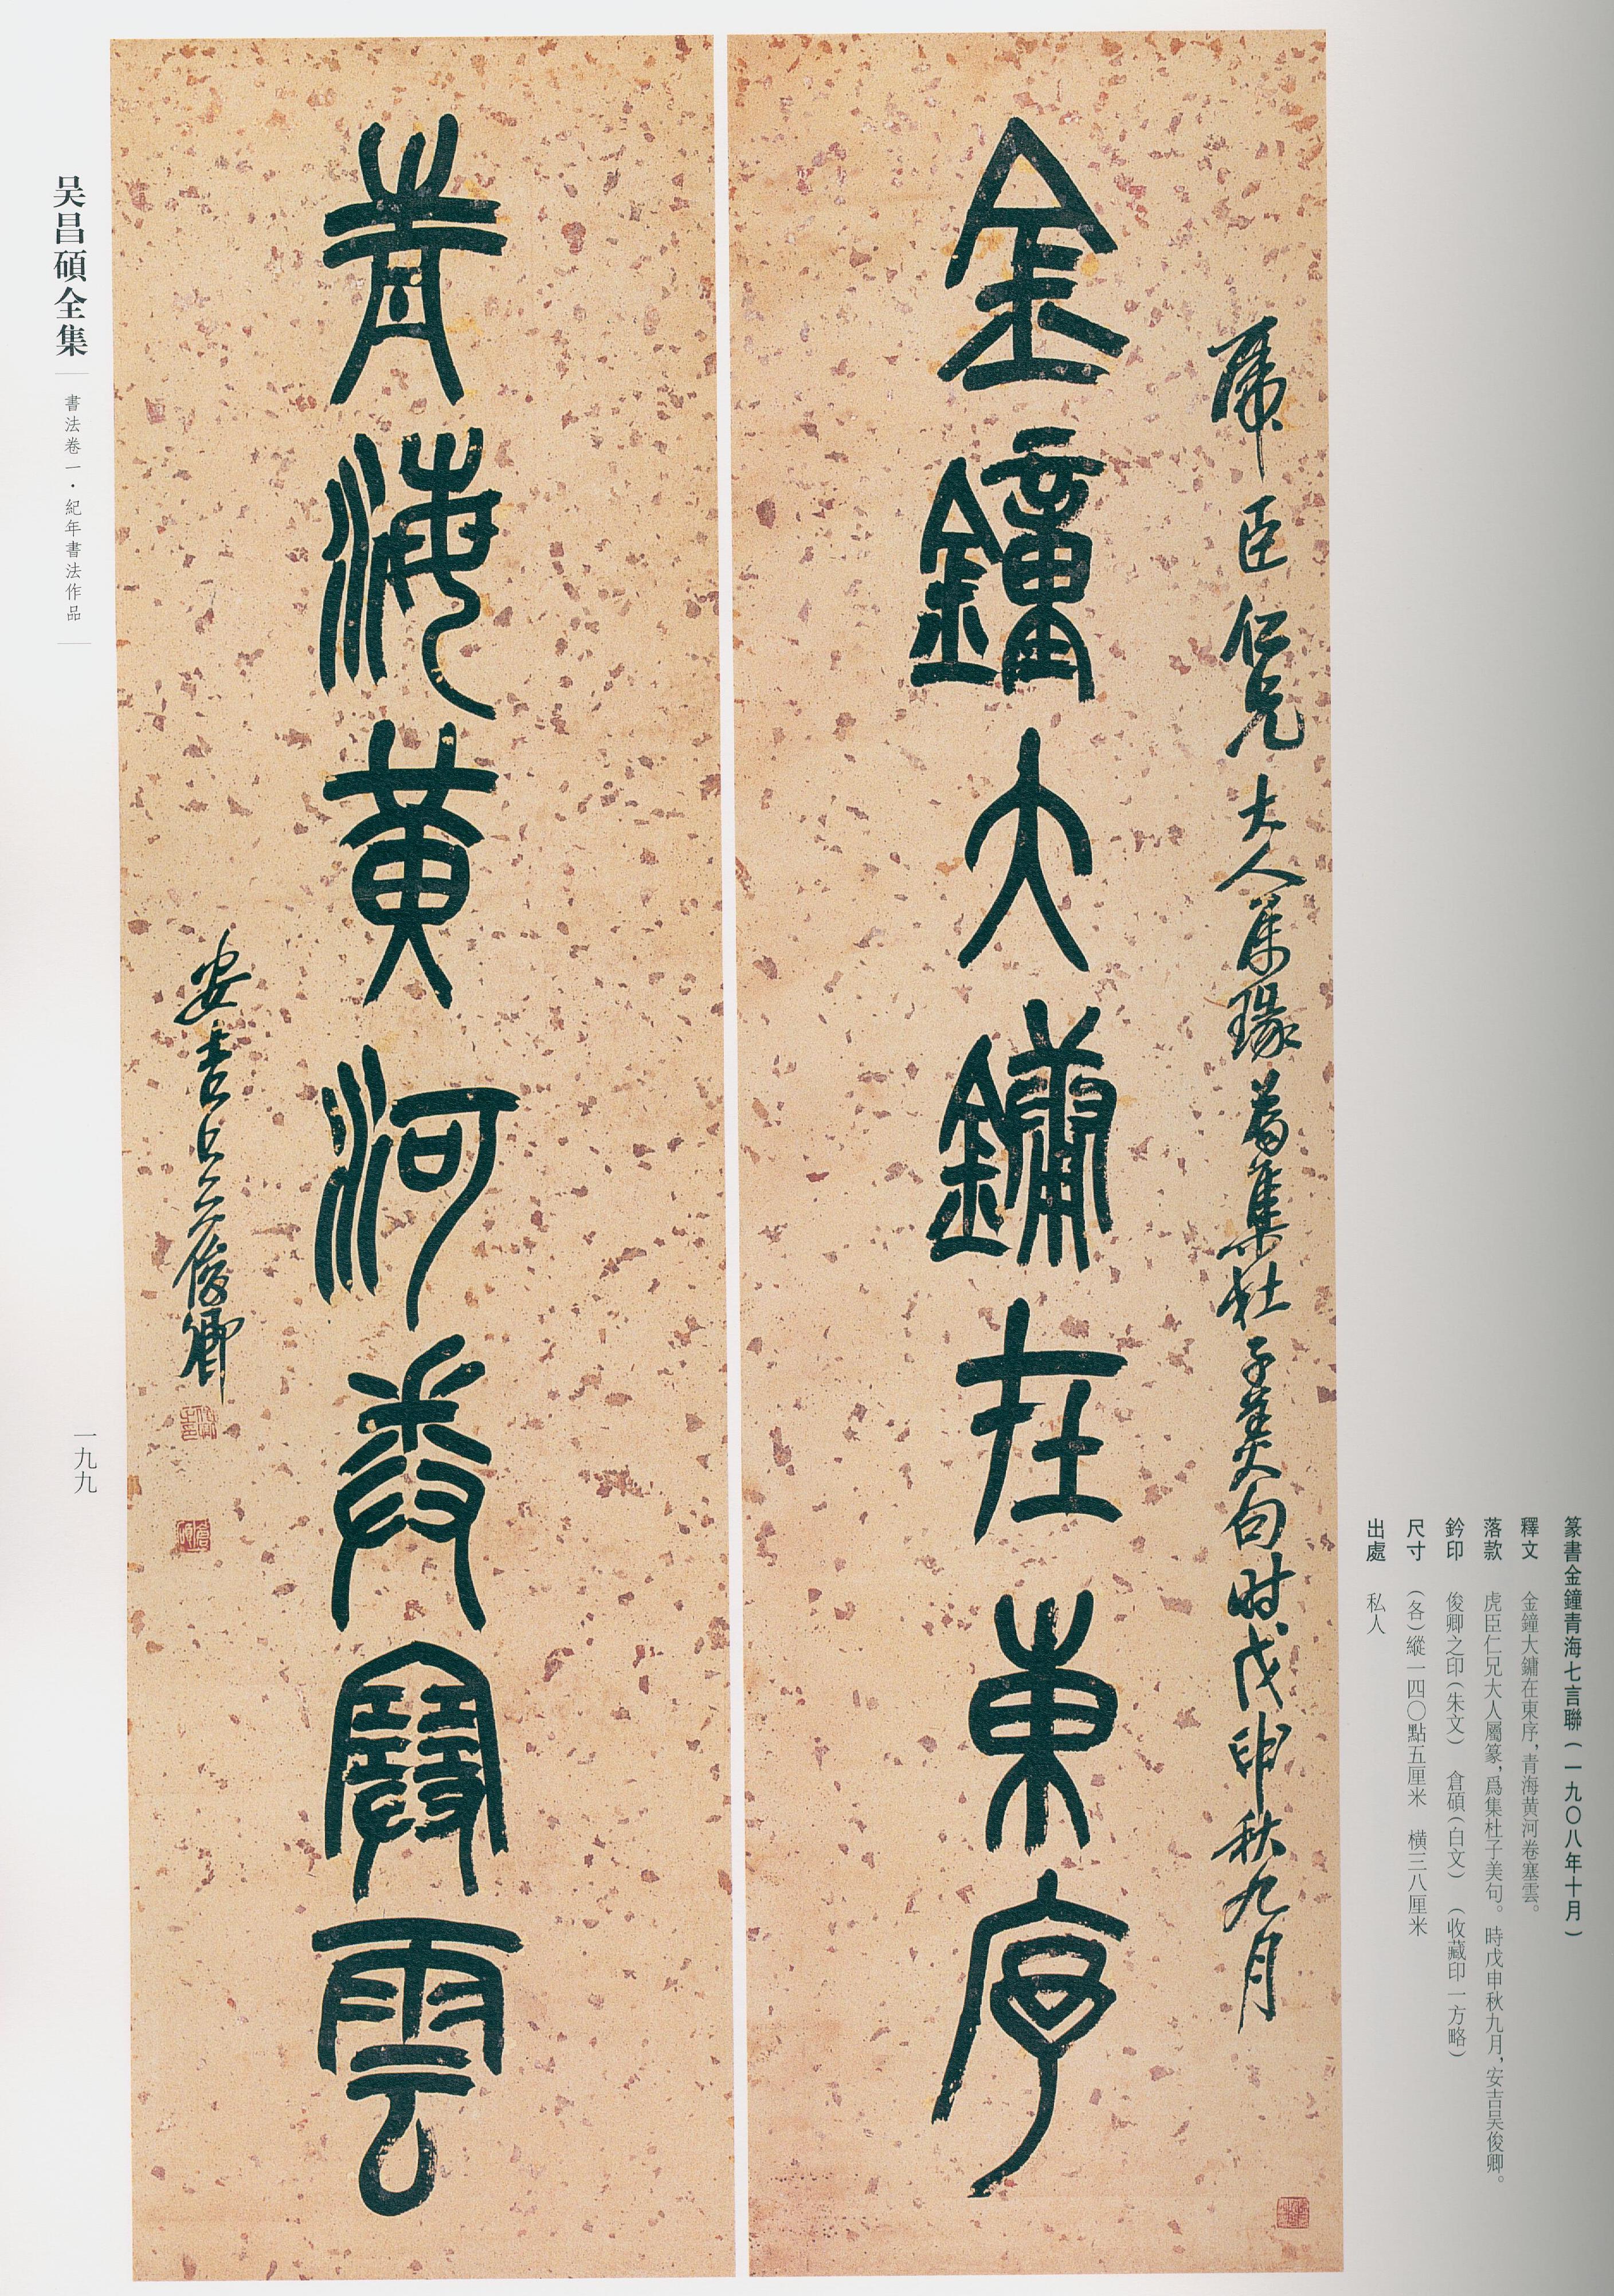 篆書金鐘青海七言聯（一九〇八年十月）
釋文　金鐘大鏞在東序，青海黄河卷塞雲。
落款　虎臣仁兄大人屬篆，爲集杜子美句。時戊申秋九月，安吉吴俊卿。
鈐印　俊卿之印（朱文）　倉碩（白文）　（收藏印一方略）
尺寸　（各）縱一四〇點五厘米　横三八厘米
出處　私人
虎臣仁兄大人屬篆為集杜子美句时戊申秋九月
金鐘大鏞在東序
青海黄河卷塞雲
安吉吴俊卿
吴昌碩全集
書法卷一・紀年書法作品
一九九